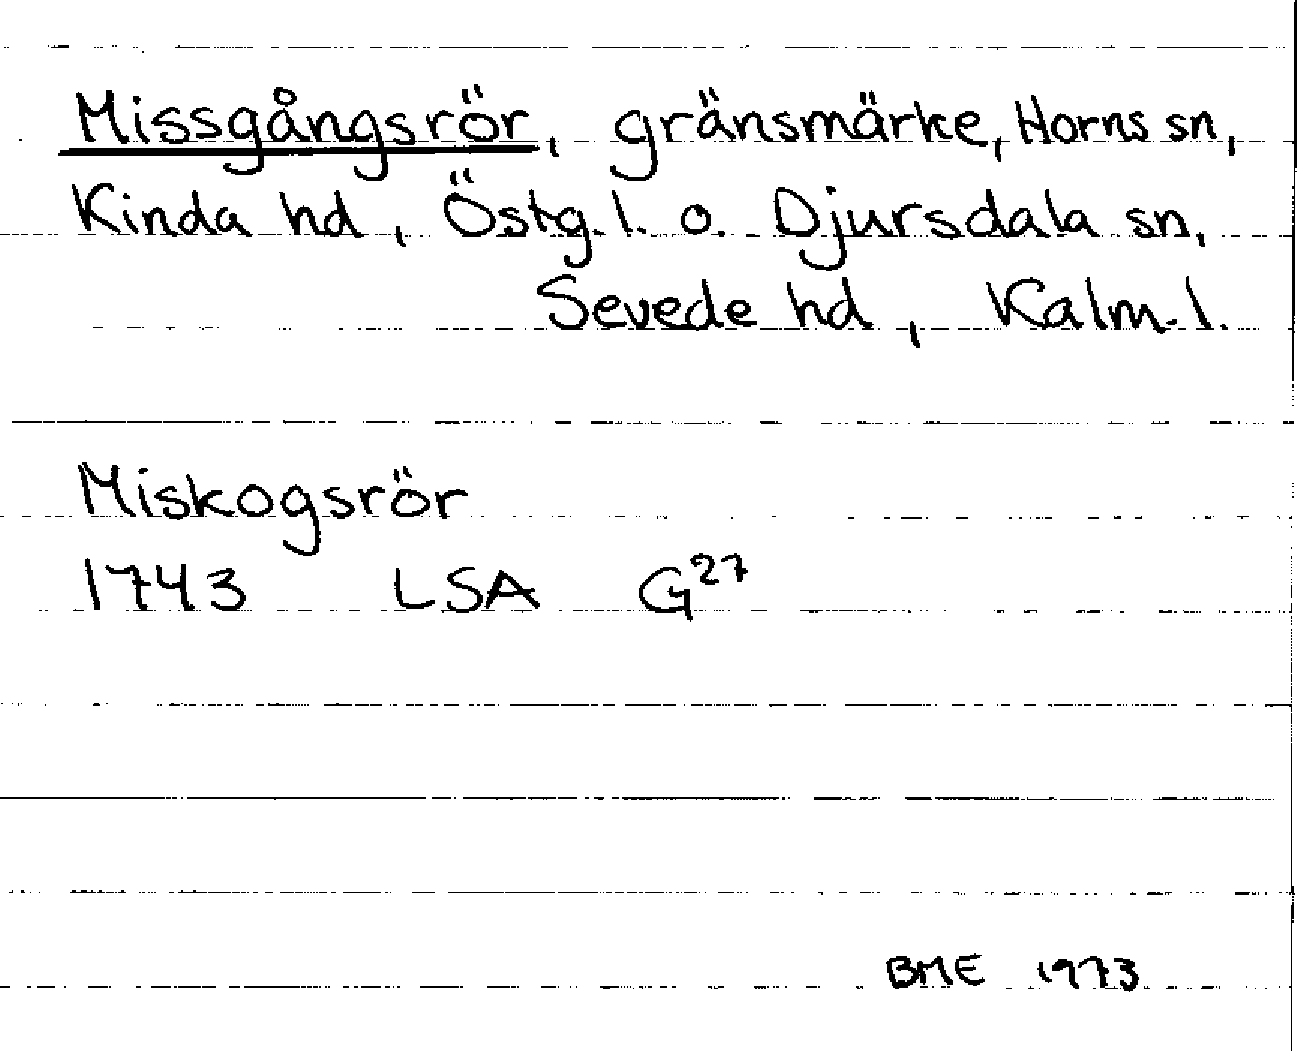 Missgångsrör, gränsmärke, Horns sn,
Kinda hd, Östg. l. o. Djursdala sn,
Sevede hd, Kalm. l.
Miskogsrör
1743 LSA G27
BME 1973